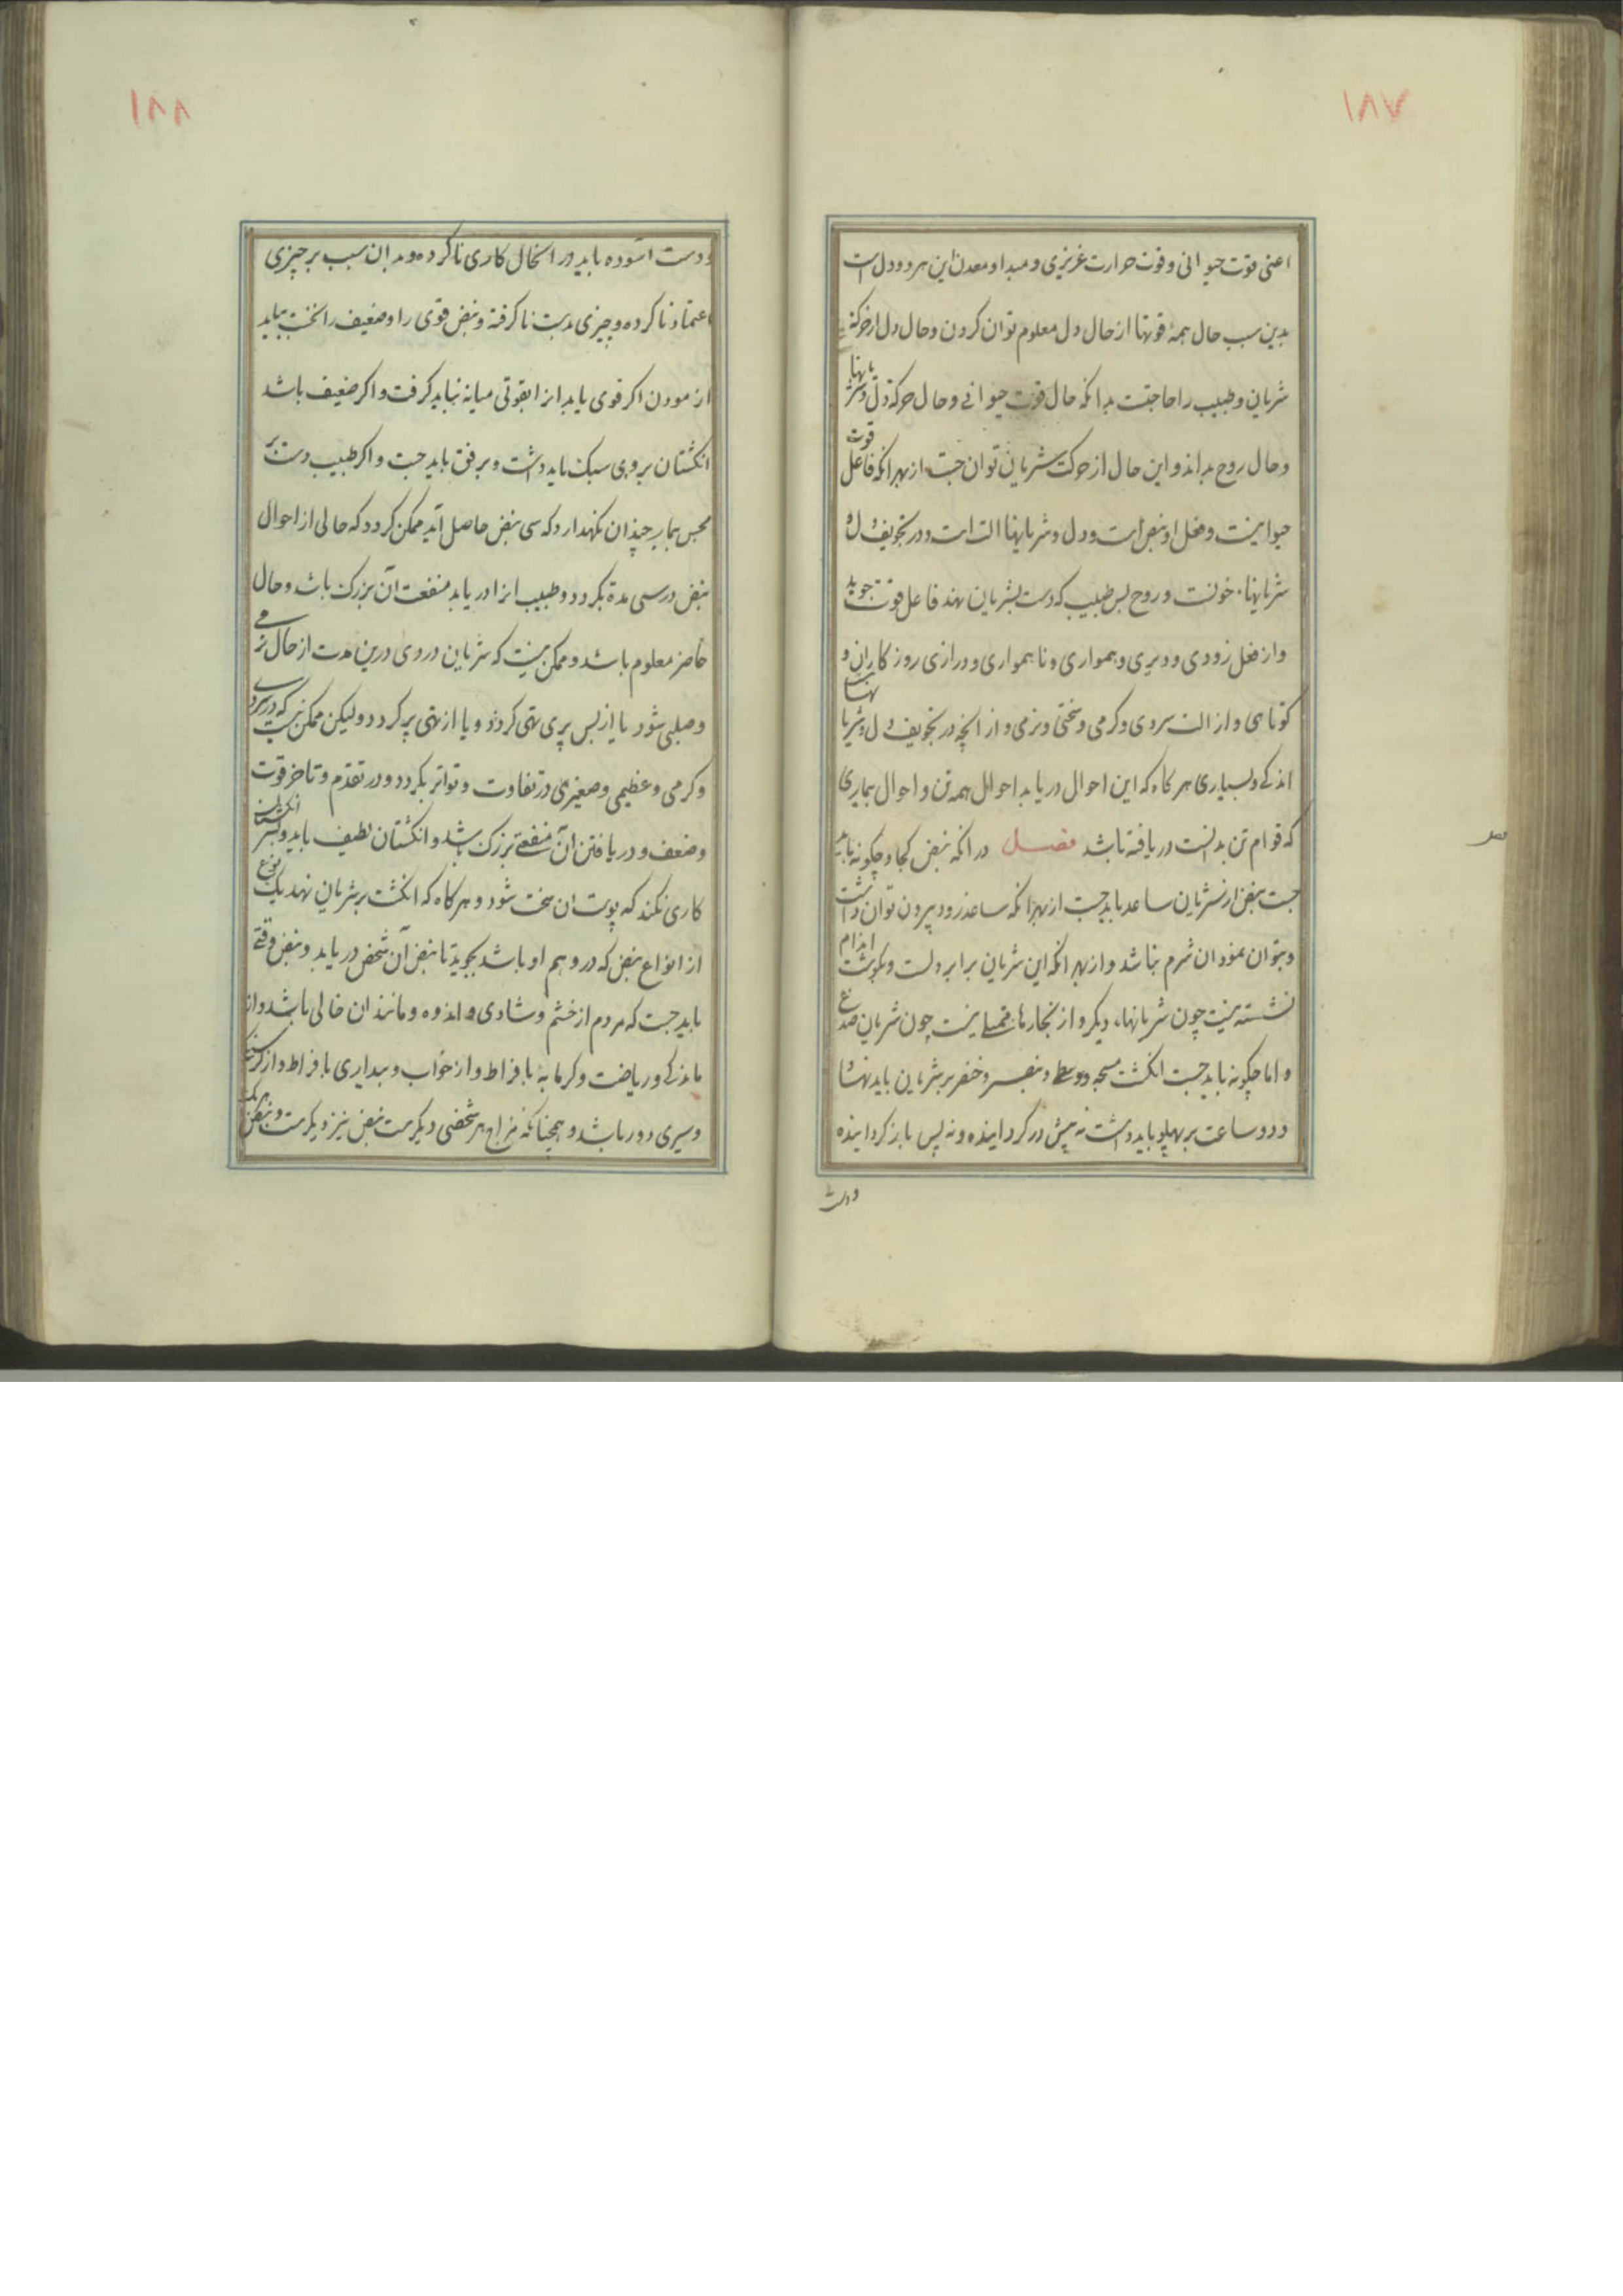 ۱۸۷
اعنی قوت حیوانی و قوت حرارت غریزی و مبدا و معدن این هر دو دل است
بدین سبب حال همهٔ قوتها از حال دل معلوم توان کردن و حال دل از حرکة
شریان و طبیب را حاجتست بدانکه حال قوت حیوانی و حال حرکة دل و شریانها
و حال روح بداند و این حال از حرکت شریان توان جست از بهر آنکه فاعل قوت
حیوانیست و فعل او نبض است و دل و شریانها الت است و در تجویف دل و
شریانها خونست و روح بس طبیب که دست بشریان نهد فاعل قوت جوید
و از فعل زودی و دیری و همواری و ناهمواری و درازی روزکاران و
کوتاهی و از الت سردی و کرمی و سختی و نرمی و از انچه در تجویف دل و شریانها
اندکی و بسیاری هر کاه که این احوال دریابد احوال همه تن و احوال بیماری
که قوام تن بدانست دریافته باشد فصل در انکه نبض کجا و چکونه باید
جست نبض از شریان ساعد باید جست از بهر انکه ساعد زود بیرون توان داشت
و بتوان نمودان شرم نباشد و از بهر انکه این شریان برابر دلست و بکوشت اندام
نشسته نیست چون شریانها، دیکر و از بخارها ممتلی نیست چون شریان صدغ
و اما چکونه باید جست انکشت مسبحه و وسطی و بنصر و خنصر بر شریان باید نهاد
و دو ساعت بر پهلو باید داشت نه پیش در کردانیده و نه پس باز کردانیده
و دست
۱۸۸
و دست اسوده باید در انحال کاری ناکرده و بدان سبب بر چیزی
اعتماد ناکرده و چیزی بدست ناکرفته و نبض قوی را و ضعیف را نخست بباید
ازمودن اکر قوی یابد انرا بقوتی میانه بباید کرفت و اکر ضعیف باشد
انکشتان بر وی سبک باید داشت و برفق باید جست و اکر طبیب دست بر
مجس بیمار چندان نکهدارد که سی نبض حاصل آید ممکن کردد که حالی از احوال
نبض در سی مدة بکردد و طبیب انرا دریابد منفعت آن بزرک باشد و حال
حاضر معلوم باشد و ممکن نیست که شریان در وی درین مدت از حال نرمی
و صلبی شود یا از بس پری تهی کردد و یا از تهی پر کردد و لیکن ممکن نیست که در سردی
و کرمی و عظیمی و صغیری در تفاوت و تواتر بکردد و در تقدم و تاخر قوت
و ضعف و دریافتن آن منفعتی بزرک باشد و انکشتان لطیف باید و بسر انکشتان
کاری نکند که پوست ان سخت شود و هر کاه که انکشت بر شریان نهد یک نوع
از انواع نبض که در وهم او باشد بجوید تا نبض آن شخص دریابد و نبض وقتی
باید جست که مردم از خشم و شادی و اندوه و مانند ان خالی باشد و از
ماندکی و ریاضت و کرمابه بافراط و از خواب و بیداری بافراط و از کرسنکی
و سیری دور باشد و همچنانکه مزاج هر شخصی دیکرست نبض نیز دیکرست و نبض هر یک